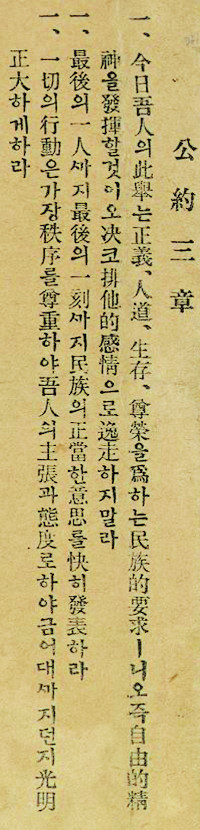 公約三章
一、今日吾人의此擧는正義、人道、生存、尊榮을爲하는民族的要求ㅣ니오즉自由的精
神을發揮할것이오决코排他的感情으로逸走하지말라
一、最後의一人ᄭᅡ지最後의一刻ᄭᅡ지民族의正當한意思를快히發表하라
一、一切의行動은가장秩序를尊重하야吾人의主張과態度로하야금어대ᄭᅡ지던지光明
正大하게하라